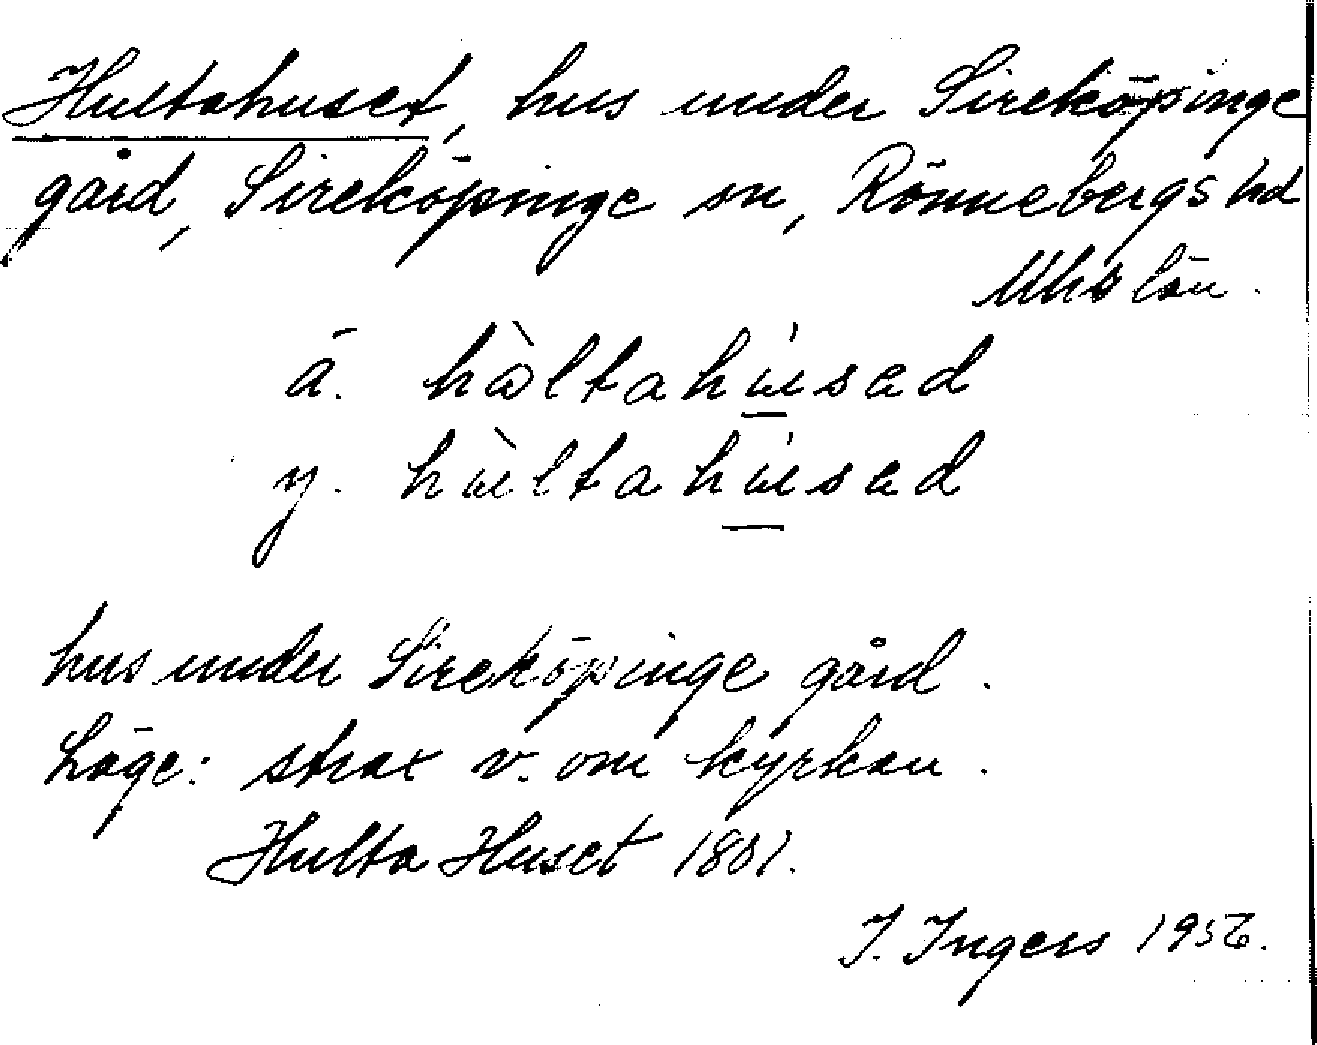 Hultahuset, hus under Sireköpinge
gård, Sireköpinge sn, Rönnebergs hd
Mhs län.
ä. hɷ̀ltahúsad
y. hùltahúsad
hus under Sireköpinge gård.
Läge: strax v. om kyrkan.
Hulta Huset 1801.
I. Ingers 1956.